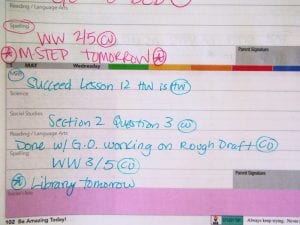 Reading / Language Arts
Spelling
WW 2/5 CW
MSTEP TOMORROW
Parent Signature
MAY Wednesday
Succeed Lesson 12 HW is HW
Science
Social Studies
Section 2 Question 3 CW
Reading / Language Arts
Done w/ G.O. working on Rough Draft CW
Spelling
WW 3/5 CW
Library tomorrow
Parent Signature
102 Be Amazing Today!
STUDY TIP Always keep trying. Never